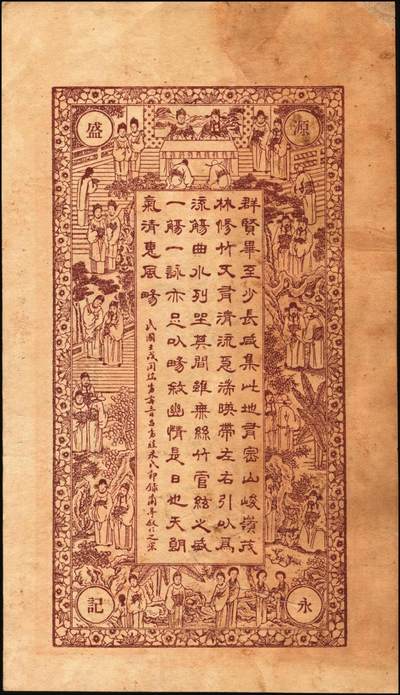 源
盛
群賢畢至少長咸集此地有崇山峻嶺茂
林修竹又有清流急湍暎帶左右引以爲
流觴曲水列坐其間雖無絲竹管絃之盛
一觴一詠亦足以暢敘幽情是日也天朗
氣清惠風暢
民國壬戌閏
永
記